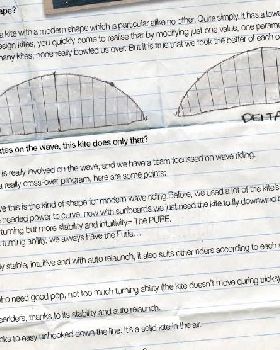 ape?
kite with a modern shape which is particular alike no other. Quite simply, it has a lower
design kites, you quickly come to realise that by modifying just one value, one
many kites, none really bowled us over. But it is true that we took the better of each
DELTA
kites on the wave, this kite does only that?
is really involved on the wave, and we have a team focused on wave riding.
really cross-over program, here are some points:
this is the kind of shape for modern wave riding. Before, we used a lot of the kite's
needed power to curve, now with surfboards we just need the kite to fly downwind
turning but more stability and intuitivity – The PURE.
turning ability, we always have the Furia...
stable, intuitive and with auto relaunch, it also suits other riders according to each
need good pop, not too much turning ability (the kite doesn't move during tricks)
thanks to its stability and auto relaunch.
to easy unhooked down the line. It's a solid kite in the air.